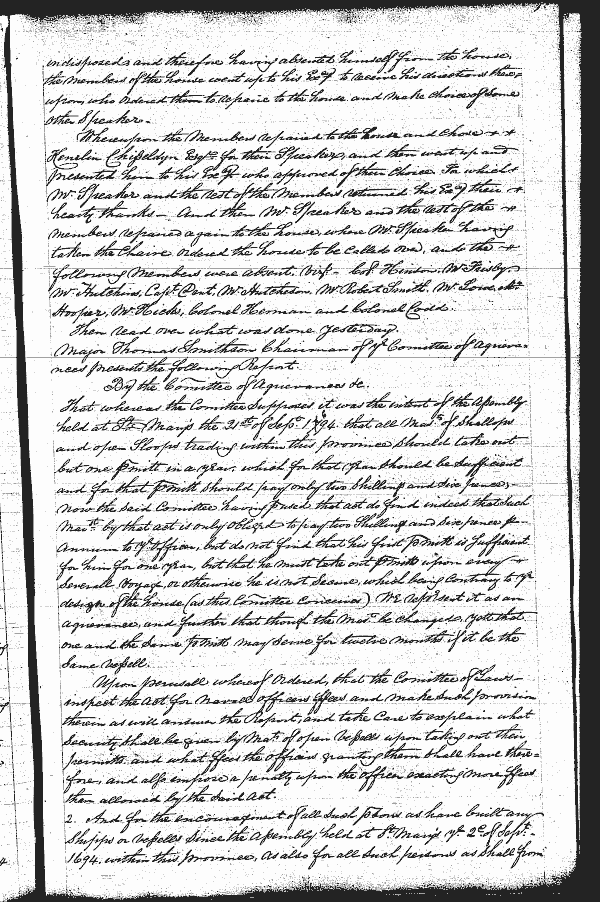 indisposed, and therefore having absented himself from the house,
the members of the house went up to his Excy. to receive his directions there
upon, who ordered them to repaire to the house and make choice of some
other Speaker.
Whereupon the Members repaired to the house and chose
Kenelm Chiseldyn Esqr. for their Speaker, and then went up and
presented him to his Excy. who approved of their choice. For which
Mr. Speaker and the rest of the Members returned his Excy. their
hearty thanks — And then Mr. Speaker and the rest of the
members repaired again to the house, where Mr. Speaker having
taken the Chaire ordered the house to be called over, and the
following Members were absent. Vizt. Col. Hinson, Mr. Frisby,
Mr. Hutchins, Capt. Dent, Mr. Hutcheson, Mr. Robert Smith, Mr. Lowe, Mr.
Hooper, Mr. Hicks, Colonel Herman and Colonel Codd.
Then read over what was done yesterday.
Major Thomas Smithson Chairman of ye. Comittee of Agrieva-
nces presents the following Report.
By the Comittee of Agrievances &c.
That whereas the Comittee Supposes it was the intent of the Assembly
held at St. Marys the 21st. of Sepr. 1694. that all Mars. of Shallops
and open Sloops trading within this province should take out
but one pmitt in a year, which for that year should be sufficient
and for that pmitt should pay only two shillings and six pence,
now the said Comittee having pused that act do find indeed that such
Mars. by that act is only obliged to pay two Shillings and six pence p.
Annum to ye. officer, but do not find that his first pmitt is sufficient
for him for one year, but that he must take out pmitts upon every
severall voyage, or otherwise he is not secure, which being contrary to ye.
design of the house (as this Comittee conceives) We repsent it as an
agrievance, and further that though the Mar. be changed, yett that
one and the same pmitt may serve for twelve months if it be the
same vessell.
Upon perusall whereof Ordered, that the Comittee of Laws
inspect the Act for navall officers ffees and make such provision
therein as will answer the Report, and take Care to explain what
Security shall be given by Mars. of open vessells upon taking out their
permitts and what ffees the officers granting them shall have there-
fore, and also impose a penalty upon the officer exacting more ffees
then allowed by the said Act.
2. And for the encouragement of all such psons as have built any
Shipps or vessells since the Assembly held at St. Marys ye. 2d. of Sept.
1694. within this province, As also for all such persons as shall from